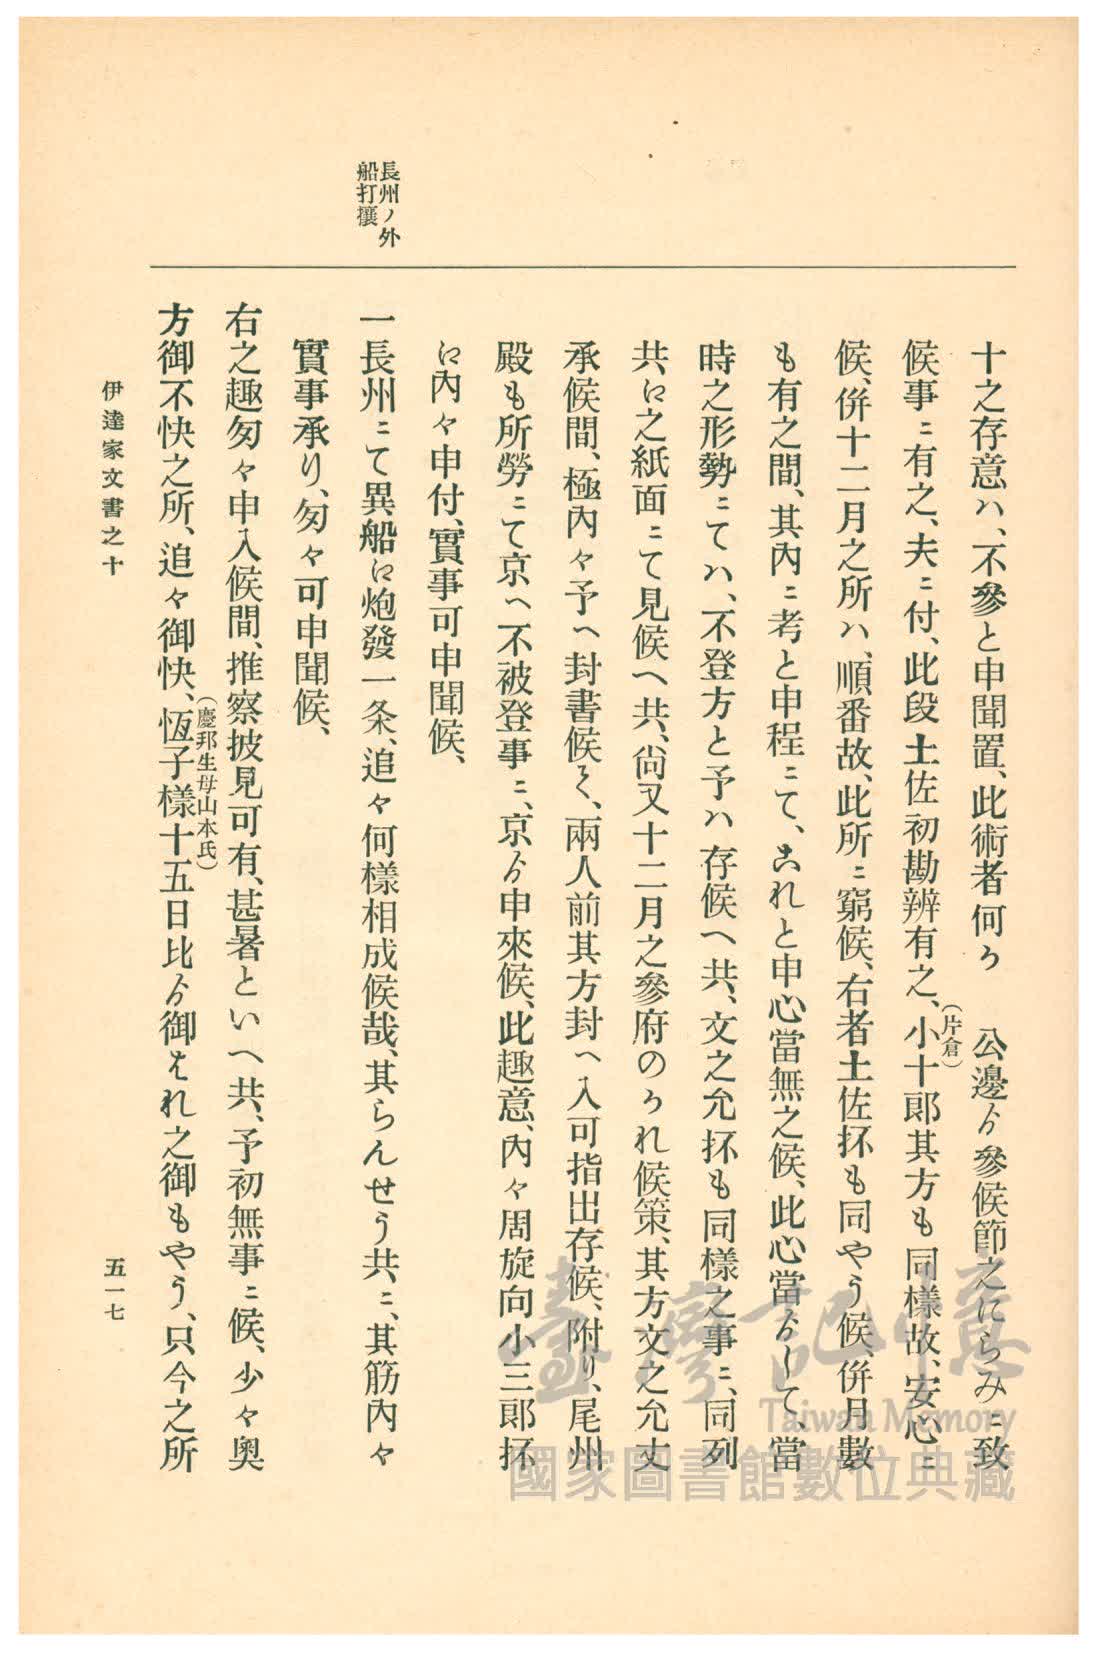 長州ノ外
船打攘
十之存意ハ、不參と申聞置、此術者何う　公邊ゟ參候節之にらみニ致
候事ニ有之、夫ニ付、此段土佐初勘辨有之、小十郎其方も同樣故、安心ニ
(片倉)
候、併十二月之所ハ、順番故、此所ニ窮候、右者土佐抔も同やう候、併月數
も有之間、其內ニ考と申程ニて、あれと申心當無之候、此心當ゟして、當
時之形勢ニてハ、不登方と予ハ存候へ共、文之允抔も同樣之事ニ、同列
共に之紙面ニて見候へ共、尙又十二月之參府のうれ候策、其方文之允丈
承候間、極內々予へ封書候て、兩人前其方封へ入可指出存候、附り、尾州
殿も所勞ニて京へ不被登事ニ、京ゟ申來候、此趣意、內々周旋向小三郎抔
に內々申付、實事可申聞候、
一長州ニて異船に炮發一条、追々何樣相成候哉、其らんせう共ニ、其筋內々
實事承り、匆々可申聞候、
右之趣匆々申入候間、推察披見可有、甚暑といへ共、予初無事ニ候、少々奧
方御不快之所、追々御快、恆子樣十五日比ゟ御はれ之御もやう、只今之所
(慶邦生母山本氏)
伊達家文書之十
五一七
臺灣記憶
Taiwan Memory
國家圖書館數位典藏